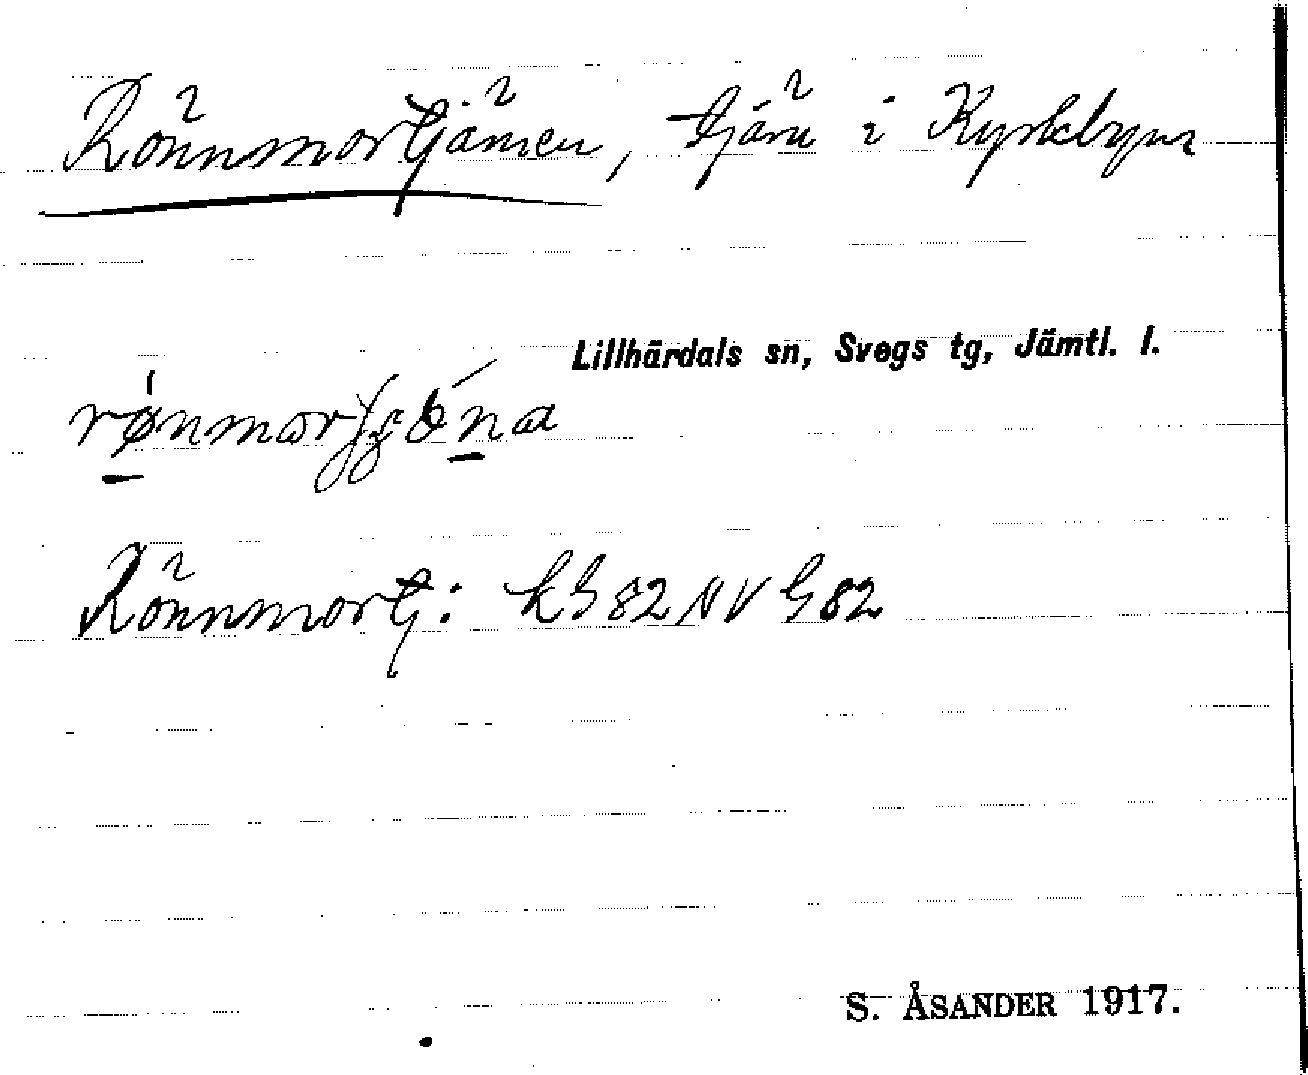 Rönnmortjärnen, tjärn i Kyrkbyn
Lillhärdals sn, Svegs tg, Jämtl. l.
Rönnmortj: kG 82 NV G 82
S. ÅSANDER 1917.